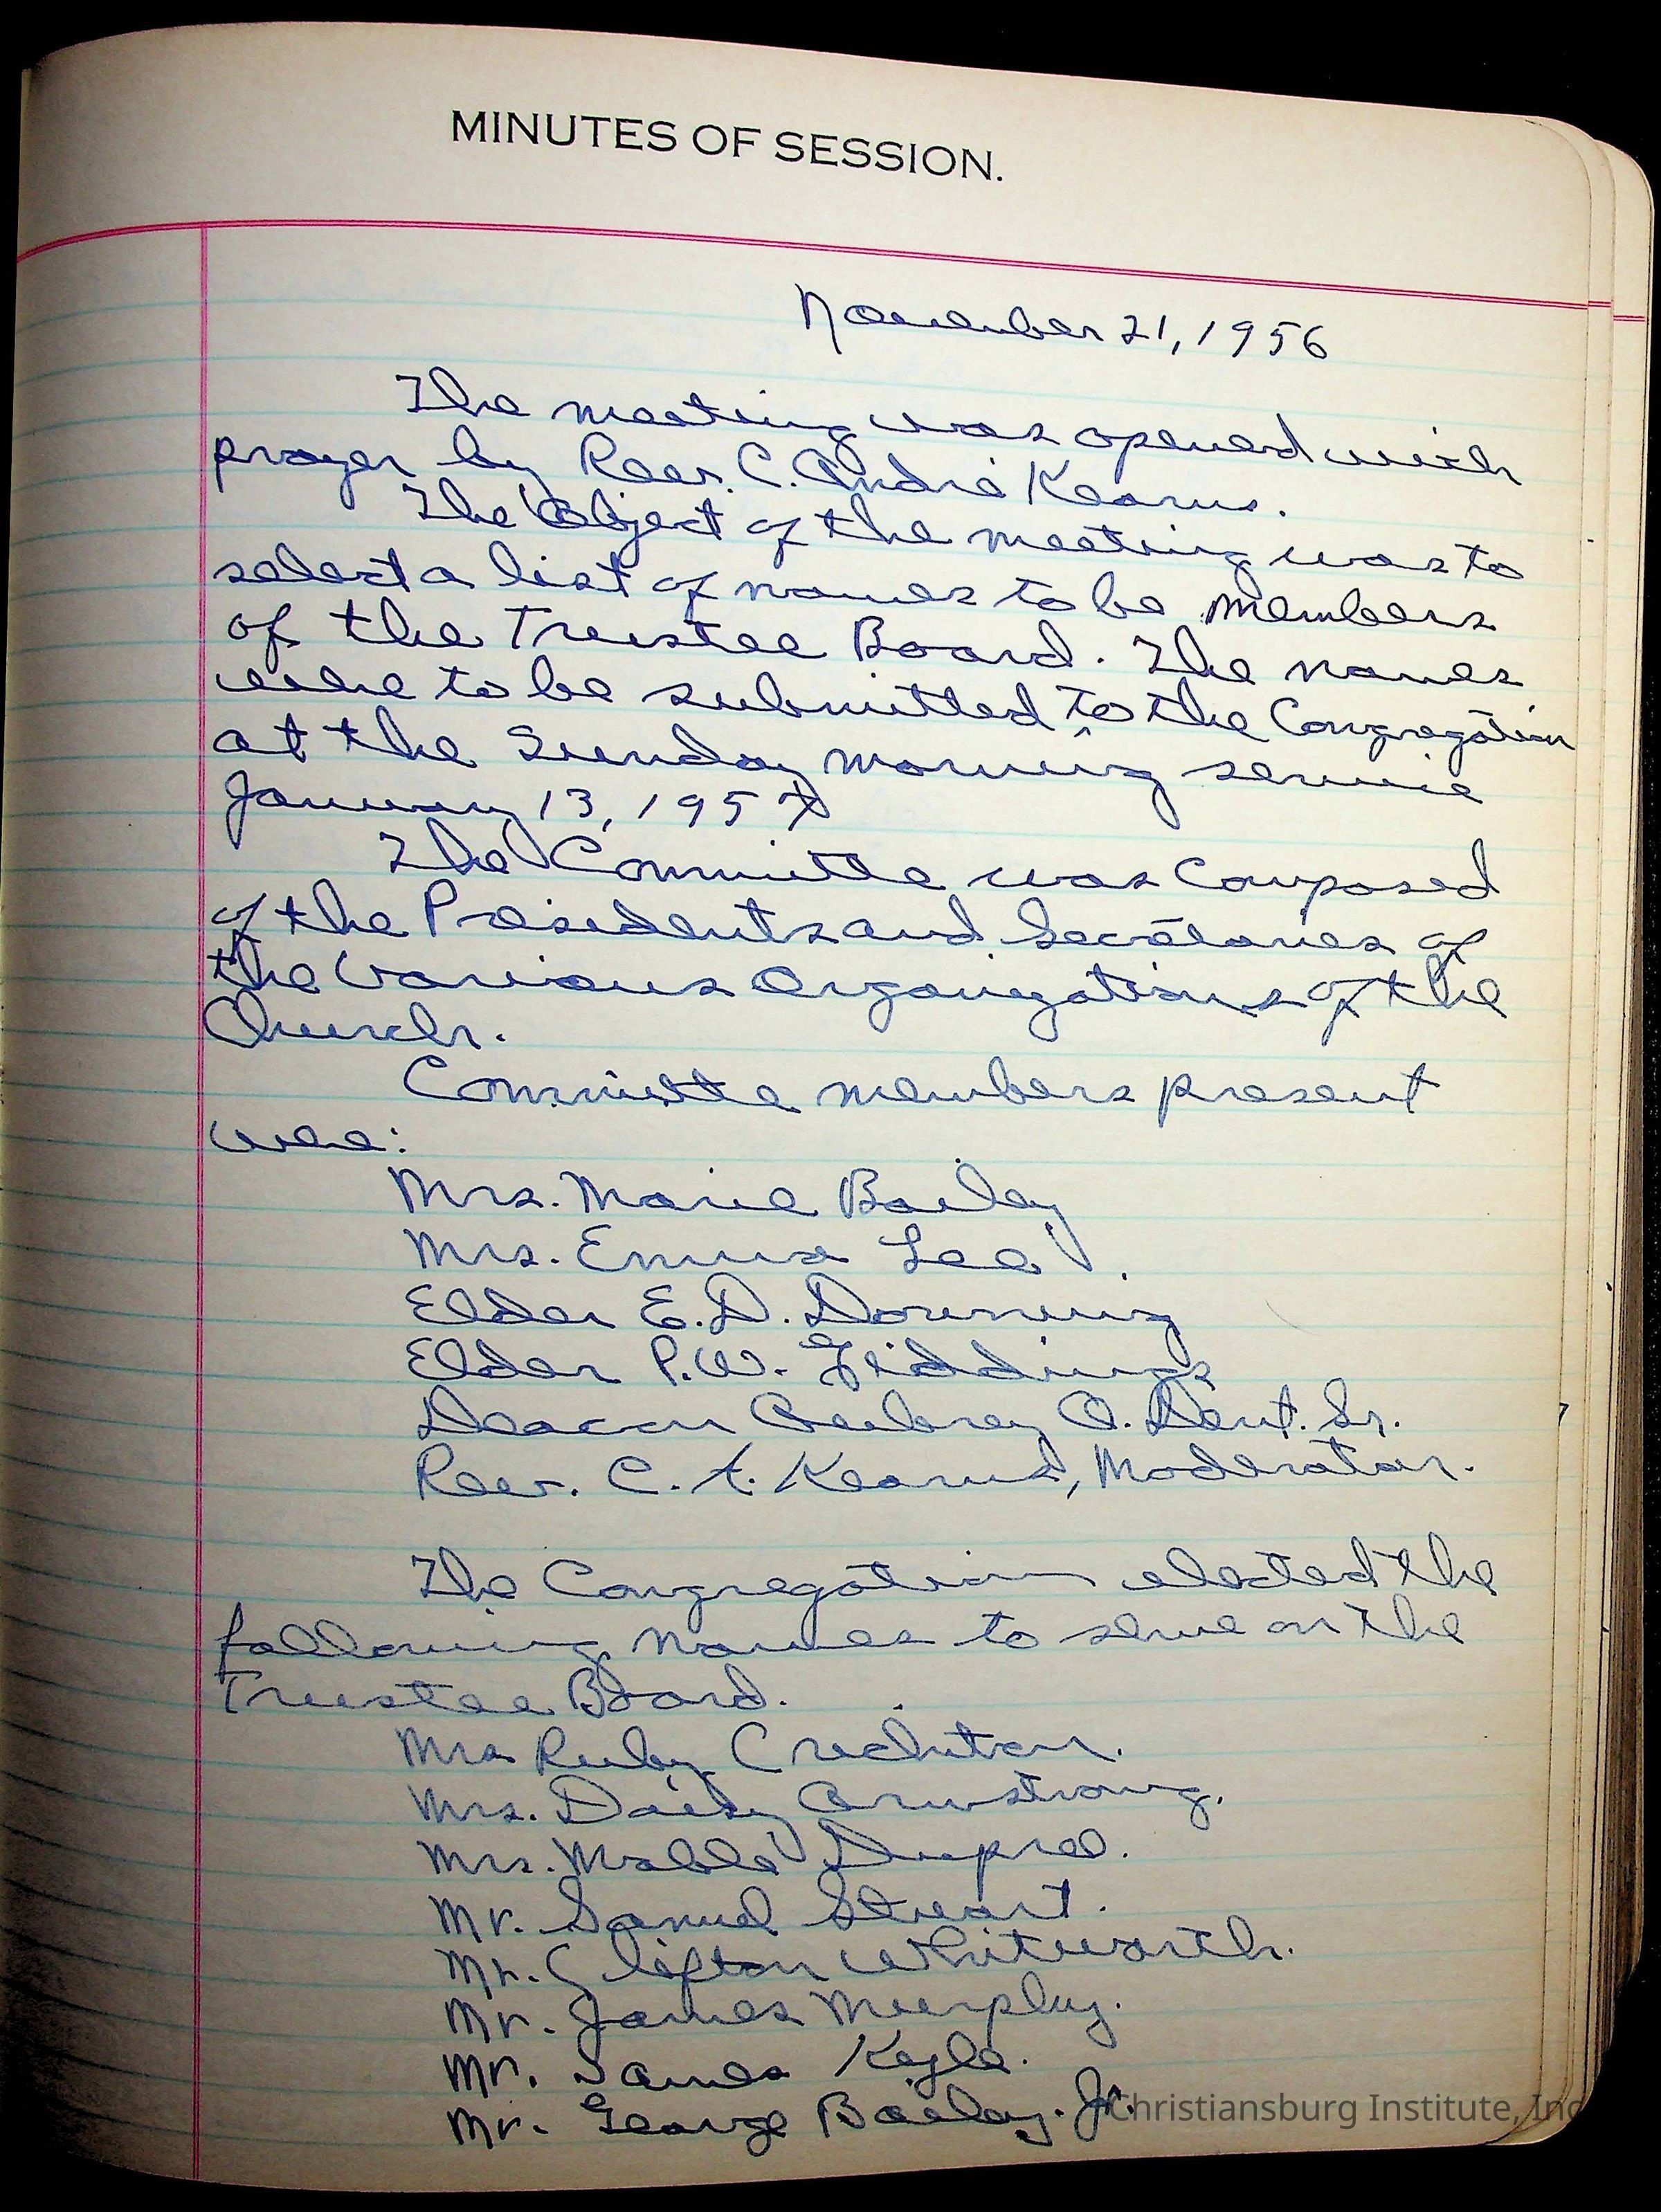 MINUTES OF SESSION.
November 21, 1956
The meeting was opened with
prayer by Rev. C. André Kearns.
The Object of the meeting was to
select a list of names to be members
of the Trustee Board. The names
were to be submitted to the Congregation
at the Sunday morning service
January 13, 1957
The Committe was Composed
of the Presidents and Secretaries of
the Various Organizations of the
Church.
Committe members present
were:
Mrs. Marie Bailey
Mrs. Emma Lee.
Elder E.D. Downing
Elder P.W. Giddings
Deacon Aubrey O. Dent. Sr.
Rev. C. A. Kearns, Moderator.
The Congregation elected the
following names to serve on the
Trustee Board.
Mrs Ruby Crichton.
Mrs. Daisy Armstrong.
Mrs. Mable Dupree.
Mr. Samuel Stuart.
Mr. Clifton Whitworth.
Mr. James Murphy.
Mr. James Kegle.
Mr. George Bailey. Jr.
Christiansburg Institute, Inc